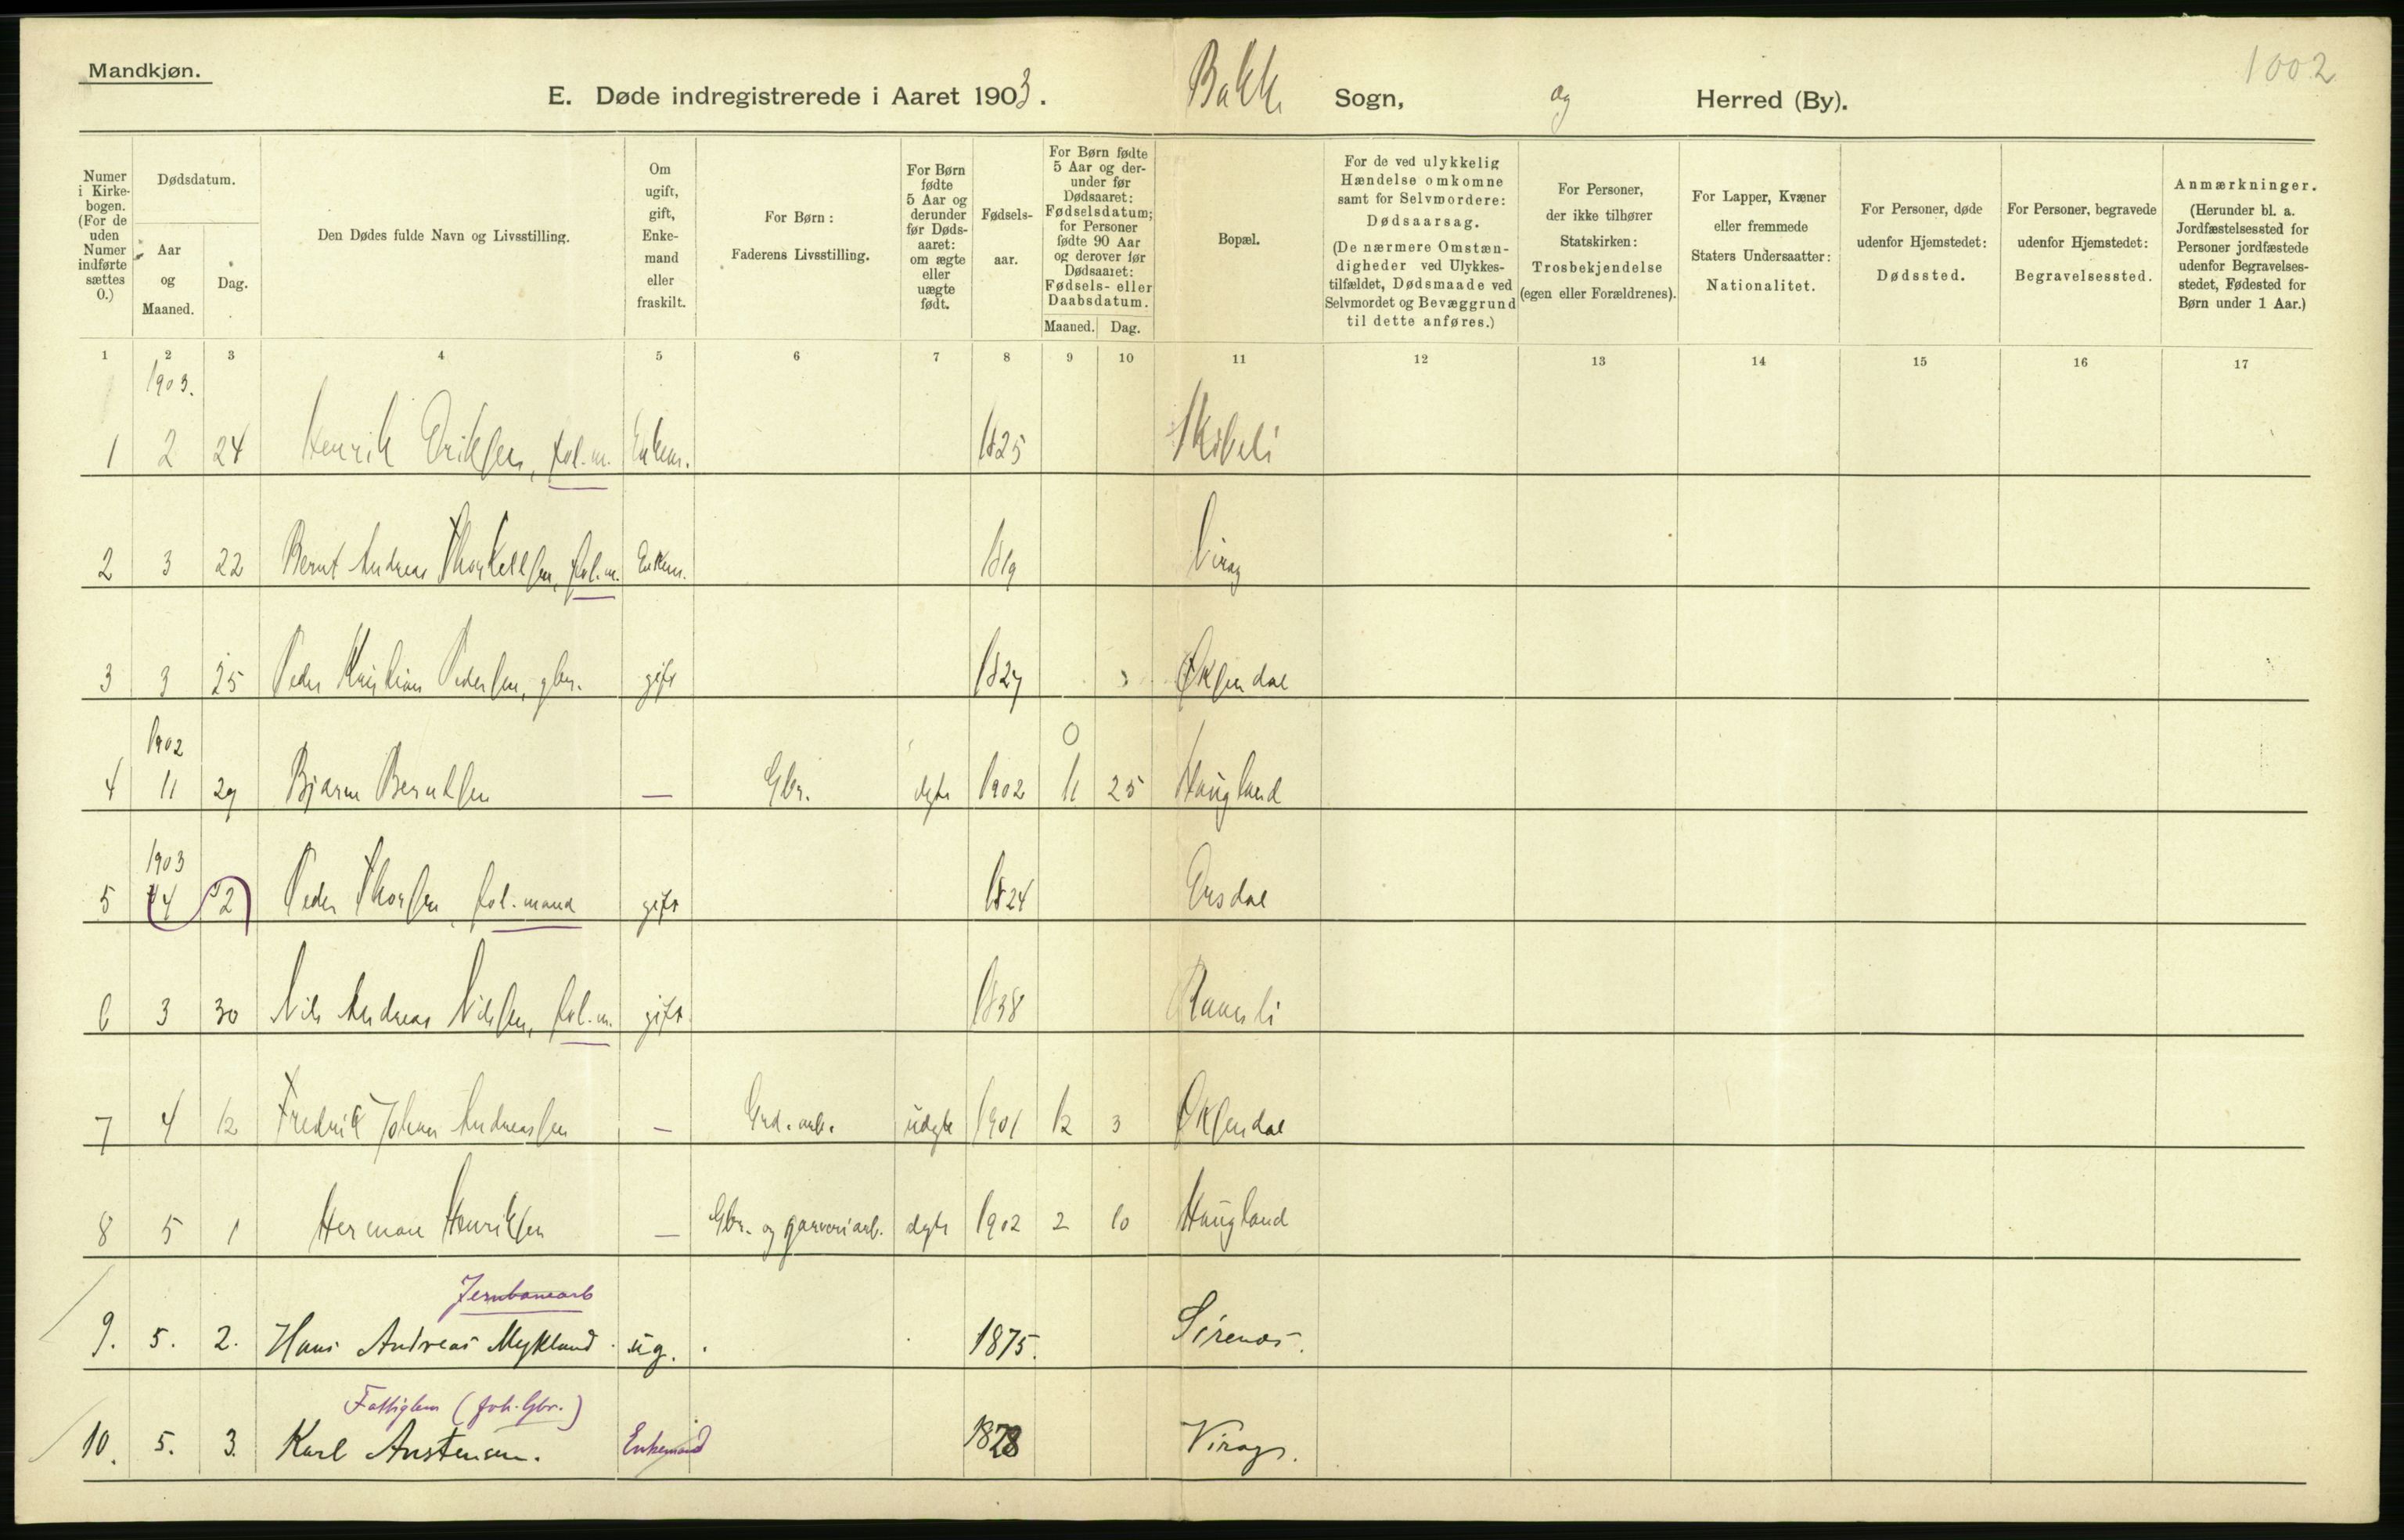 Mandkjøn.
1002
E. Døde indregistrerede i Aaret 1903. Bakke Sogn, og Herred (By).
Numer i Kirkebogen. (For de uden Numer indførte sættes 0.)
Dødsdatum.
Aar og Maaned.
Dag.
Den Dødes fulde Navn og Livsstilling.
Om ugift, gift, Enkemand eller fraskilt.
For Børn: Faderens Livsstilling.
For Børn fødte 5 Aar og derunder før Dødsaaret: om ægte eller uægte født.
Fødselsaar.
For Børn fødte 5 Aar og derunder før Dødsaaret: Fødselsdatum; for Personer fødte 90 Aar og derover før Dødsaaret: Fødsels- eller Daabsdatum.
Maaned. Dag.
Bopæl.
For de ved ulykkelig Hændelse omkomne samt for Selvmordere: Dødsaarsag. (De nærmere Omstændigheder ved Ulykkestilfældet, Dødsmaade ved Selvmordet og Bevæggrund til dette anføres.)
For Personer, der ikke tilhører Statskirken: Trosbekjendelse (egen eller Forældrenes).
For Lapper, Kvæner eller fremmede Staters Undersaatter: Nationalitet.
For Personer, døde udenfor Hjemstedet: Dødssted.
For Personer, begravede udenfor Hjemstedet: Begravelsessted.
Anmærkninger. (Herunder bl. a. Jordfæstelsessted for Personer jordfæstede udenfor Begravelsesstedet, Fødested for Børn under 1 Aar.)
1 2 3 4 5 6 7 8 9 10 11 12 13 14 15 16 17
1903.
1 2 24 Henrik Eriksen, fol.m. Enkem. 1825
2 3 22 Bernt Andreas Thorkellsen, fol.m. Enkem. 1819 Virag
3 3 25 Peder Kristian Pedersen, gbr. gift 1827 Øksendal
1902 0
4 11 29 Bjarne Berntsen — Gbr. ægte 1902 11 25 Haugland
1903
5 4 2 Peder Thorsen, fol.mand gift 1824 Ersdal
6 3 30 Nils Andreas Nilsen, fol.m. gift 1838
7 4 12 Fredrik Johan Andreassen — Grd.arb. uægte 1901 12 3 Øksendal
8 5 1 Herman Henriksen — Gbr. og garveriarb. ægte 1902 2 10 Haugland
Jernbanearb
9. 5. 2. Hans Andreas Mykland. ug. 1875. Sirenes.
Fattiglem (foh. Gbr.)
10. 5. 3. Karl Anstensen. Enkemand 1828 Virag.